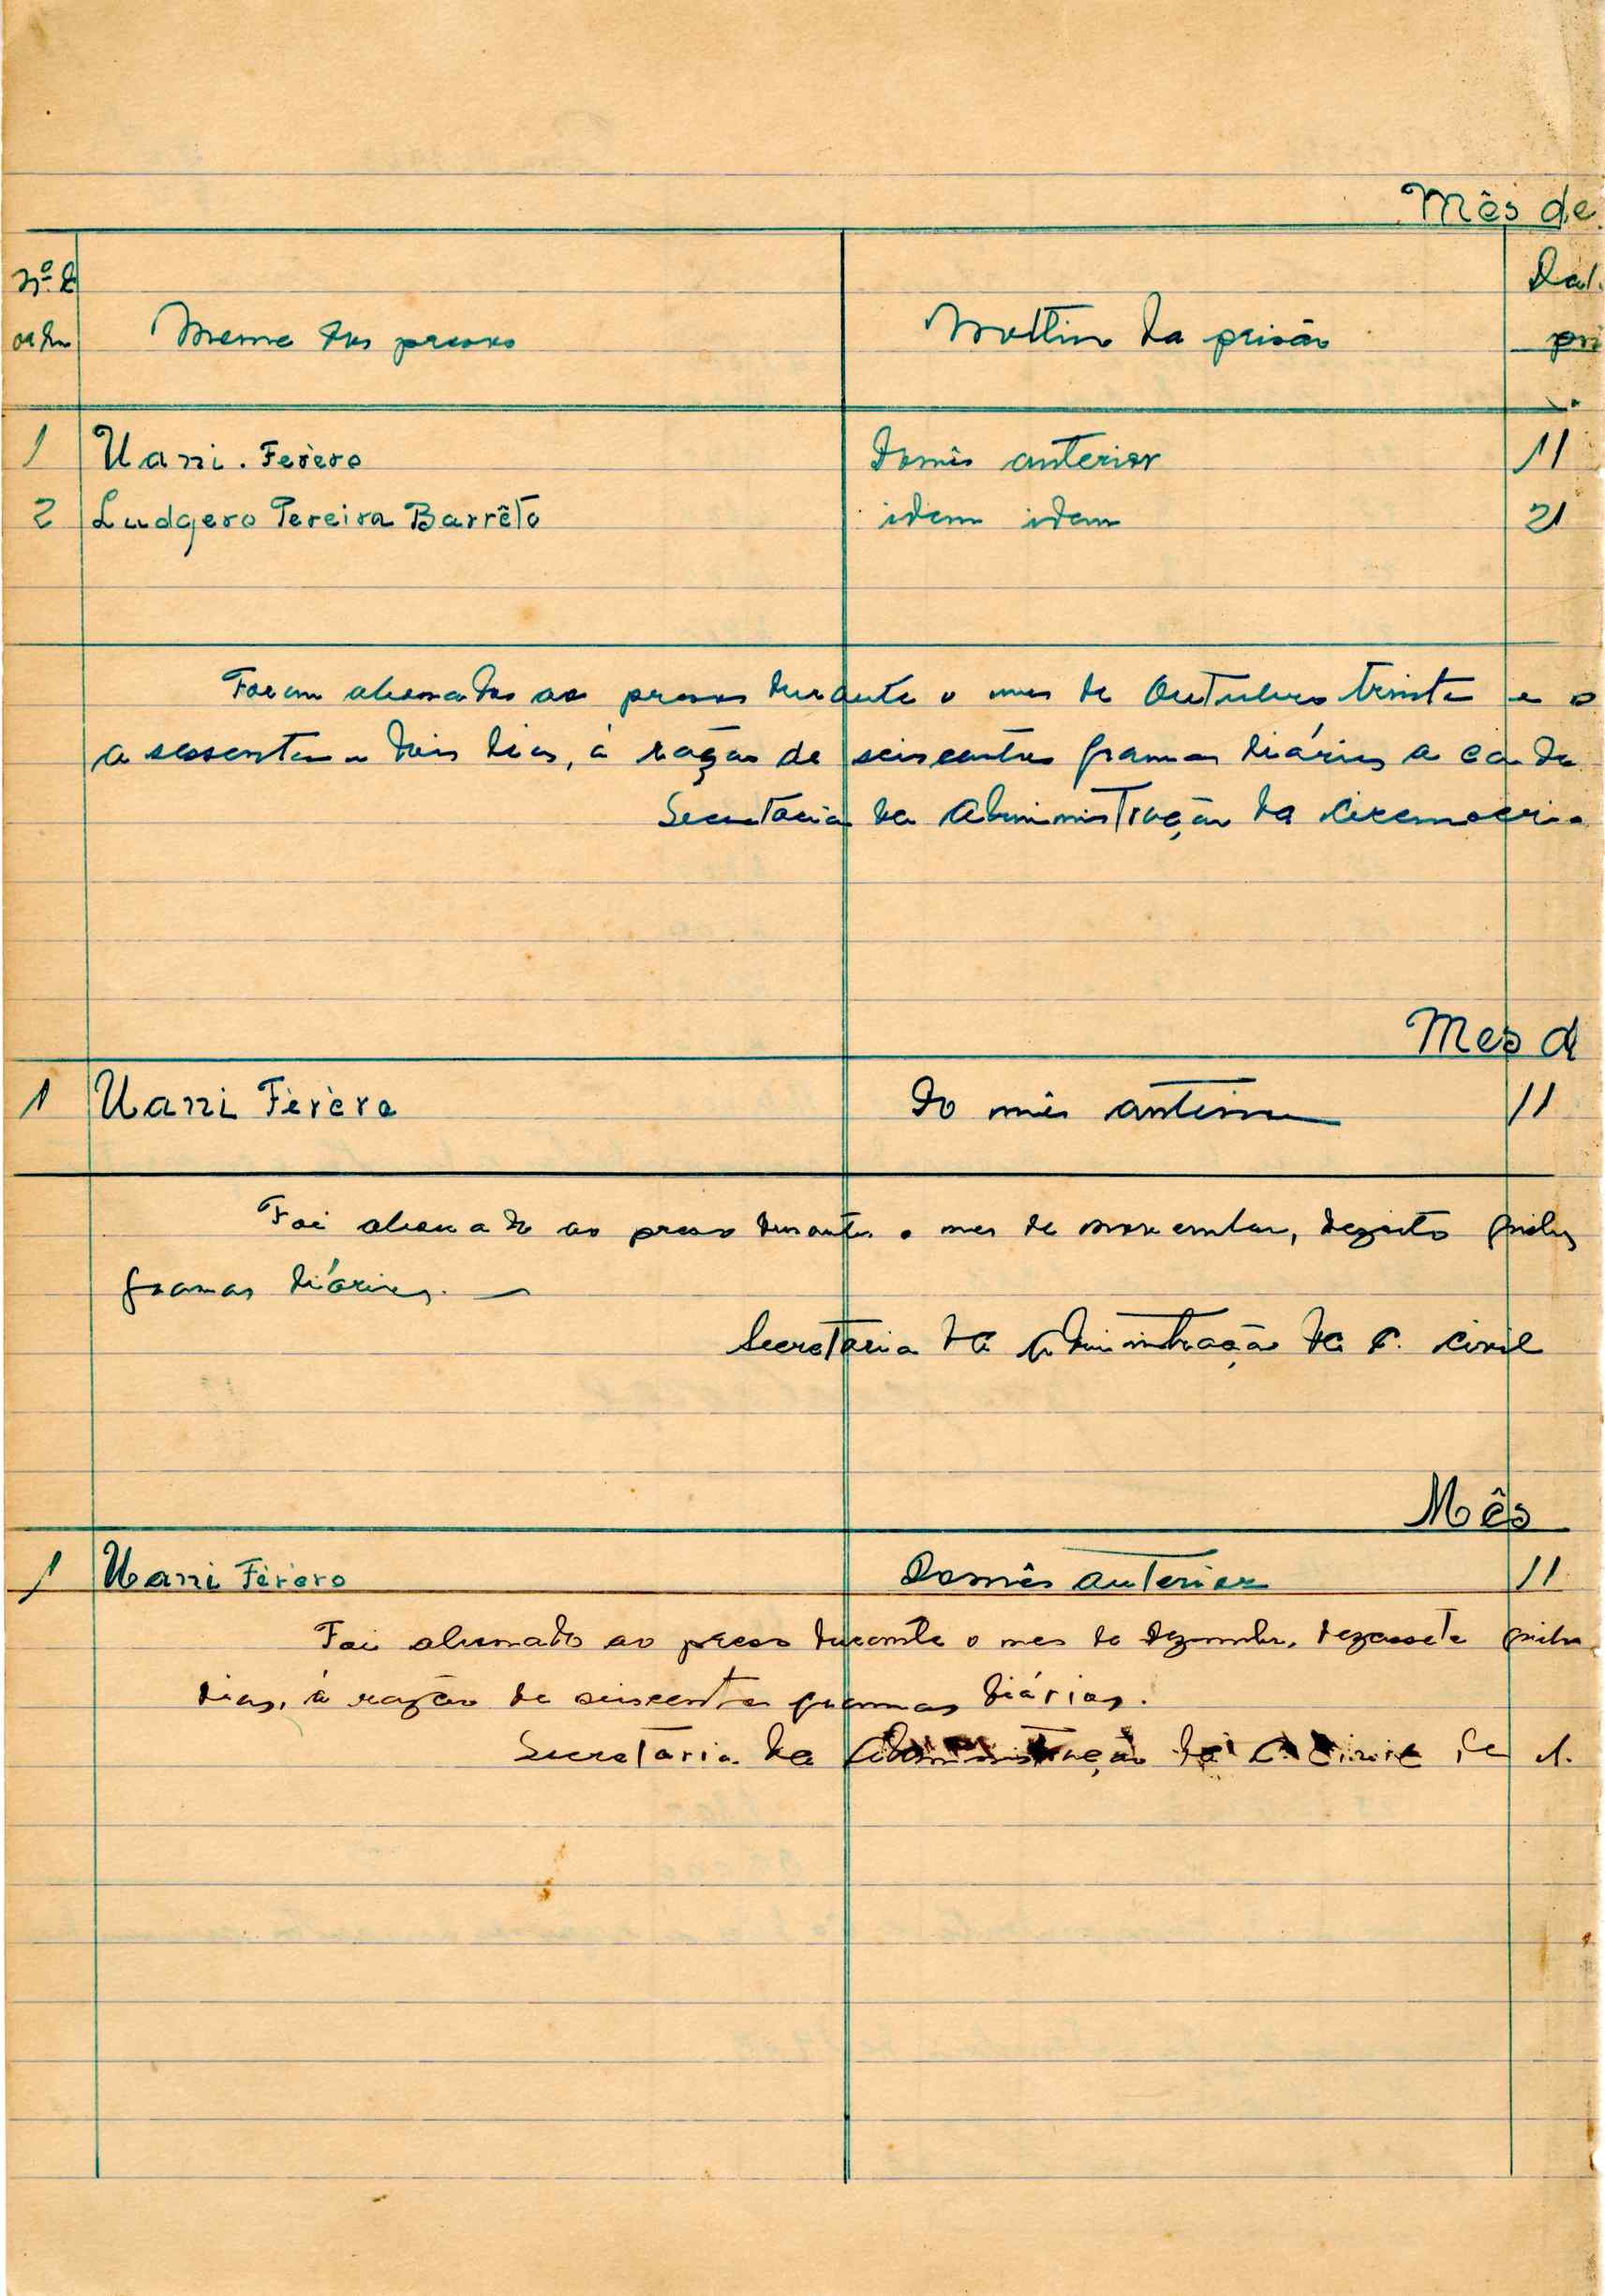 Mês de
Nº de Dat.
ordem Nome dos presos Motivo da prisão pri
1 Uani. Ferère Do mês anterior 11
2 Ludgero Pereira Barrêto idem idem 21
Foram abonados ao presos durante o mes de Outubro trinta e o
a sessenta e dois dias, à ração de seiscentos gramas diárias a cada
Secretaria da Administração da Circunscri
Mes d
1 Uani Fèrère Do mês anterior 11
Foi abonado ao preso durante o mes de novembro, dezoito quilos
gramas diárias.
Secretaria da Administração da C. Civil
Mês
1 Uani Fèrère Do mês anterior 11
Foi abonado ao preso durante o mes de dezembro, dezassete quilo
dias, à ração de seiscentas gramas diárias.
Secretaria da Administração da C. Civil de